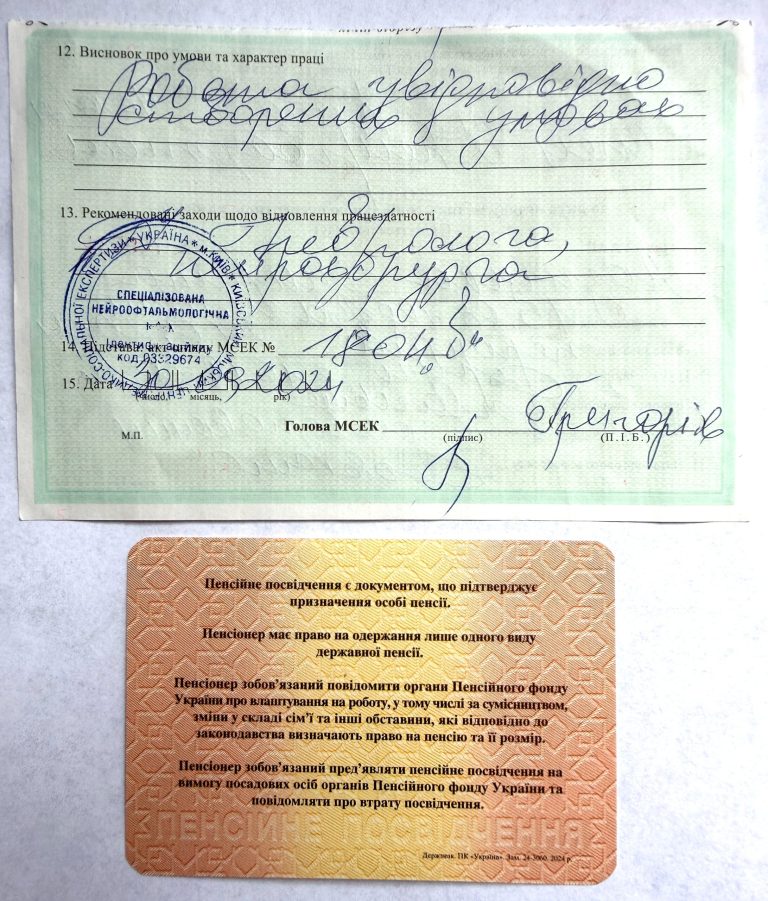 12. Висновок про умови та характер праці
Робота у відповідно
створених умовах
13. Рекомендовані заходи щодо відновлення працездатності
нейрохірурга
МЕДИКО-СОЦІАЛЬНОЇ ЕКСПЕРТИЗИ * УКРАЇНА * м.КИЇВ * КИЇВСЬКИЙ МІСЬКИЙ ЦЕНТР
СПЕЦІАЛІЗОВАНА
НЕЙРООФТАЛЬМОЛОГІЧНА
код 03329674
14. Підстава: акт огляду МСЕК №
15. Дата
(число, місяць, рік)
Голова МСЕК Григорів
М.П. (підпис) (П.І.Б.)
Пенсійне посвідчення є документом, що підтверджує
призначення особі пенсії.
Пенсіонер має право на одержання лише одного виду
державної пенсії.
Пенсіонер зобов'язаний повідомити органи Пенсійного фонду
України про влаштування на роботу, у тому числі за сумісництвом,
зміни у складі сім'ї та інші обставини, які відповідно до
законодавства визначають право на пенсію та її розмір.
Пенсіонер зобов'язаний пред'являти пенсійне посвідчення на
вимогу посадових осіб органів Пенсійного фонду України та
повідомляти про втрату посвідчення.
ПЕНСІЙНЕ ПОСВІДЧЕННЯ
Держзнак. ПК «Україна». Зам. 24-3060. 2024 р.